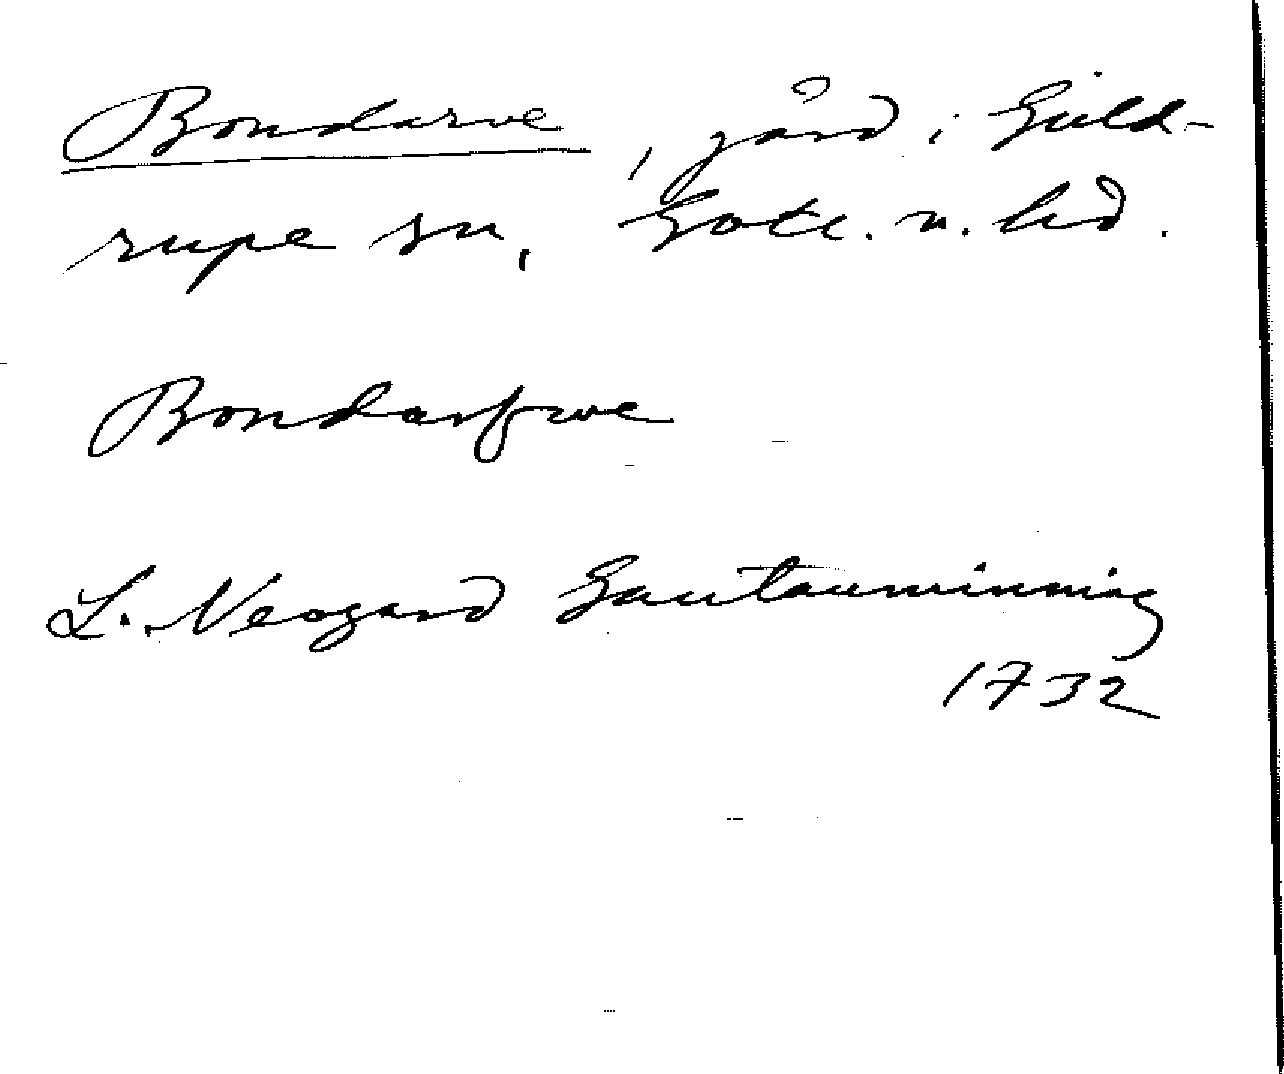 Bondarve, gård i Guld-
rupe sn, Gotl. n. hd.
Bondarfwe
L. Neogard Gautauminning
1732